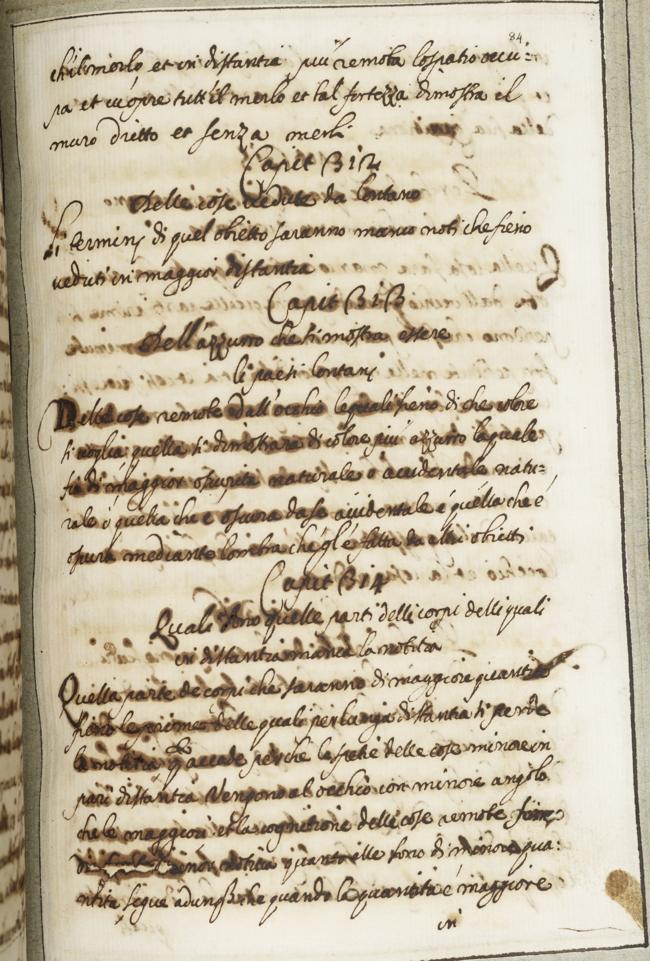 84
ch'il merlo et in distantia più remota lo spatio occu=
pa et cuopre tutt'il merlo et tal fortezza dimostra il
muro dritto et senza merli
Capit 312
Delle cose vedute da lontano
Li termini di quel obietto saranno manco noti che fieno
veduti in maggior distantia
Capit 313
Dell'azzurro che si mostra essere
li paesi lontani
Delle cose remote dall'occhio le quali sieno di che colore
si voglia quella si dimostrara di colore più azzurro la quale
fia di maggior oscurità naturale o accidentale natu=
rale è quella che è oscura da se accidentale è quella che è
oscura mediante l'ombra che gl'è fatta da altri obietti
Capit 314
Quali sono quelle parti delli corpi delli quali
in distantia manca la notitia
Quella parte de corpi che saranno di maggiore quantità
fieno le prime delle quali per lunga distantia si perde
la notitia accade perche le spetie delle cose minore in
pari distantia vengono al occhio con minore angolo
che le maggiori et la cognitione delle cose remote
notitia quanto elle sono di minore qua=
ntità segue adunque che quando la quantità è maggiore
in